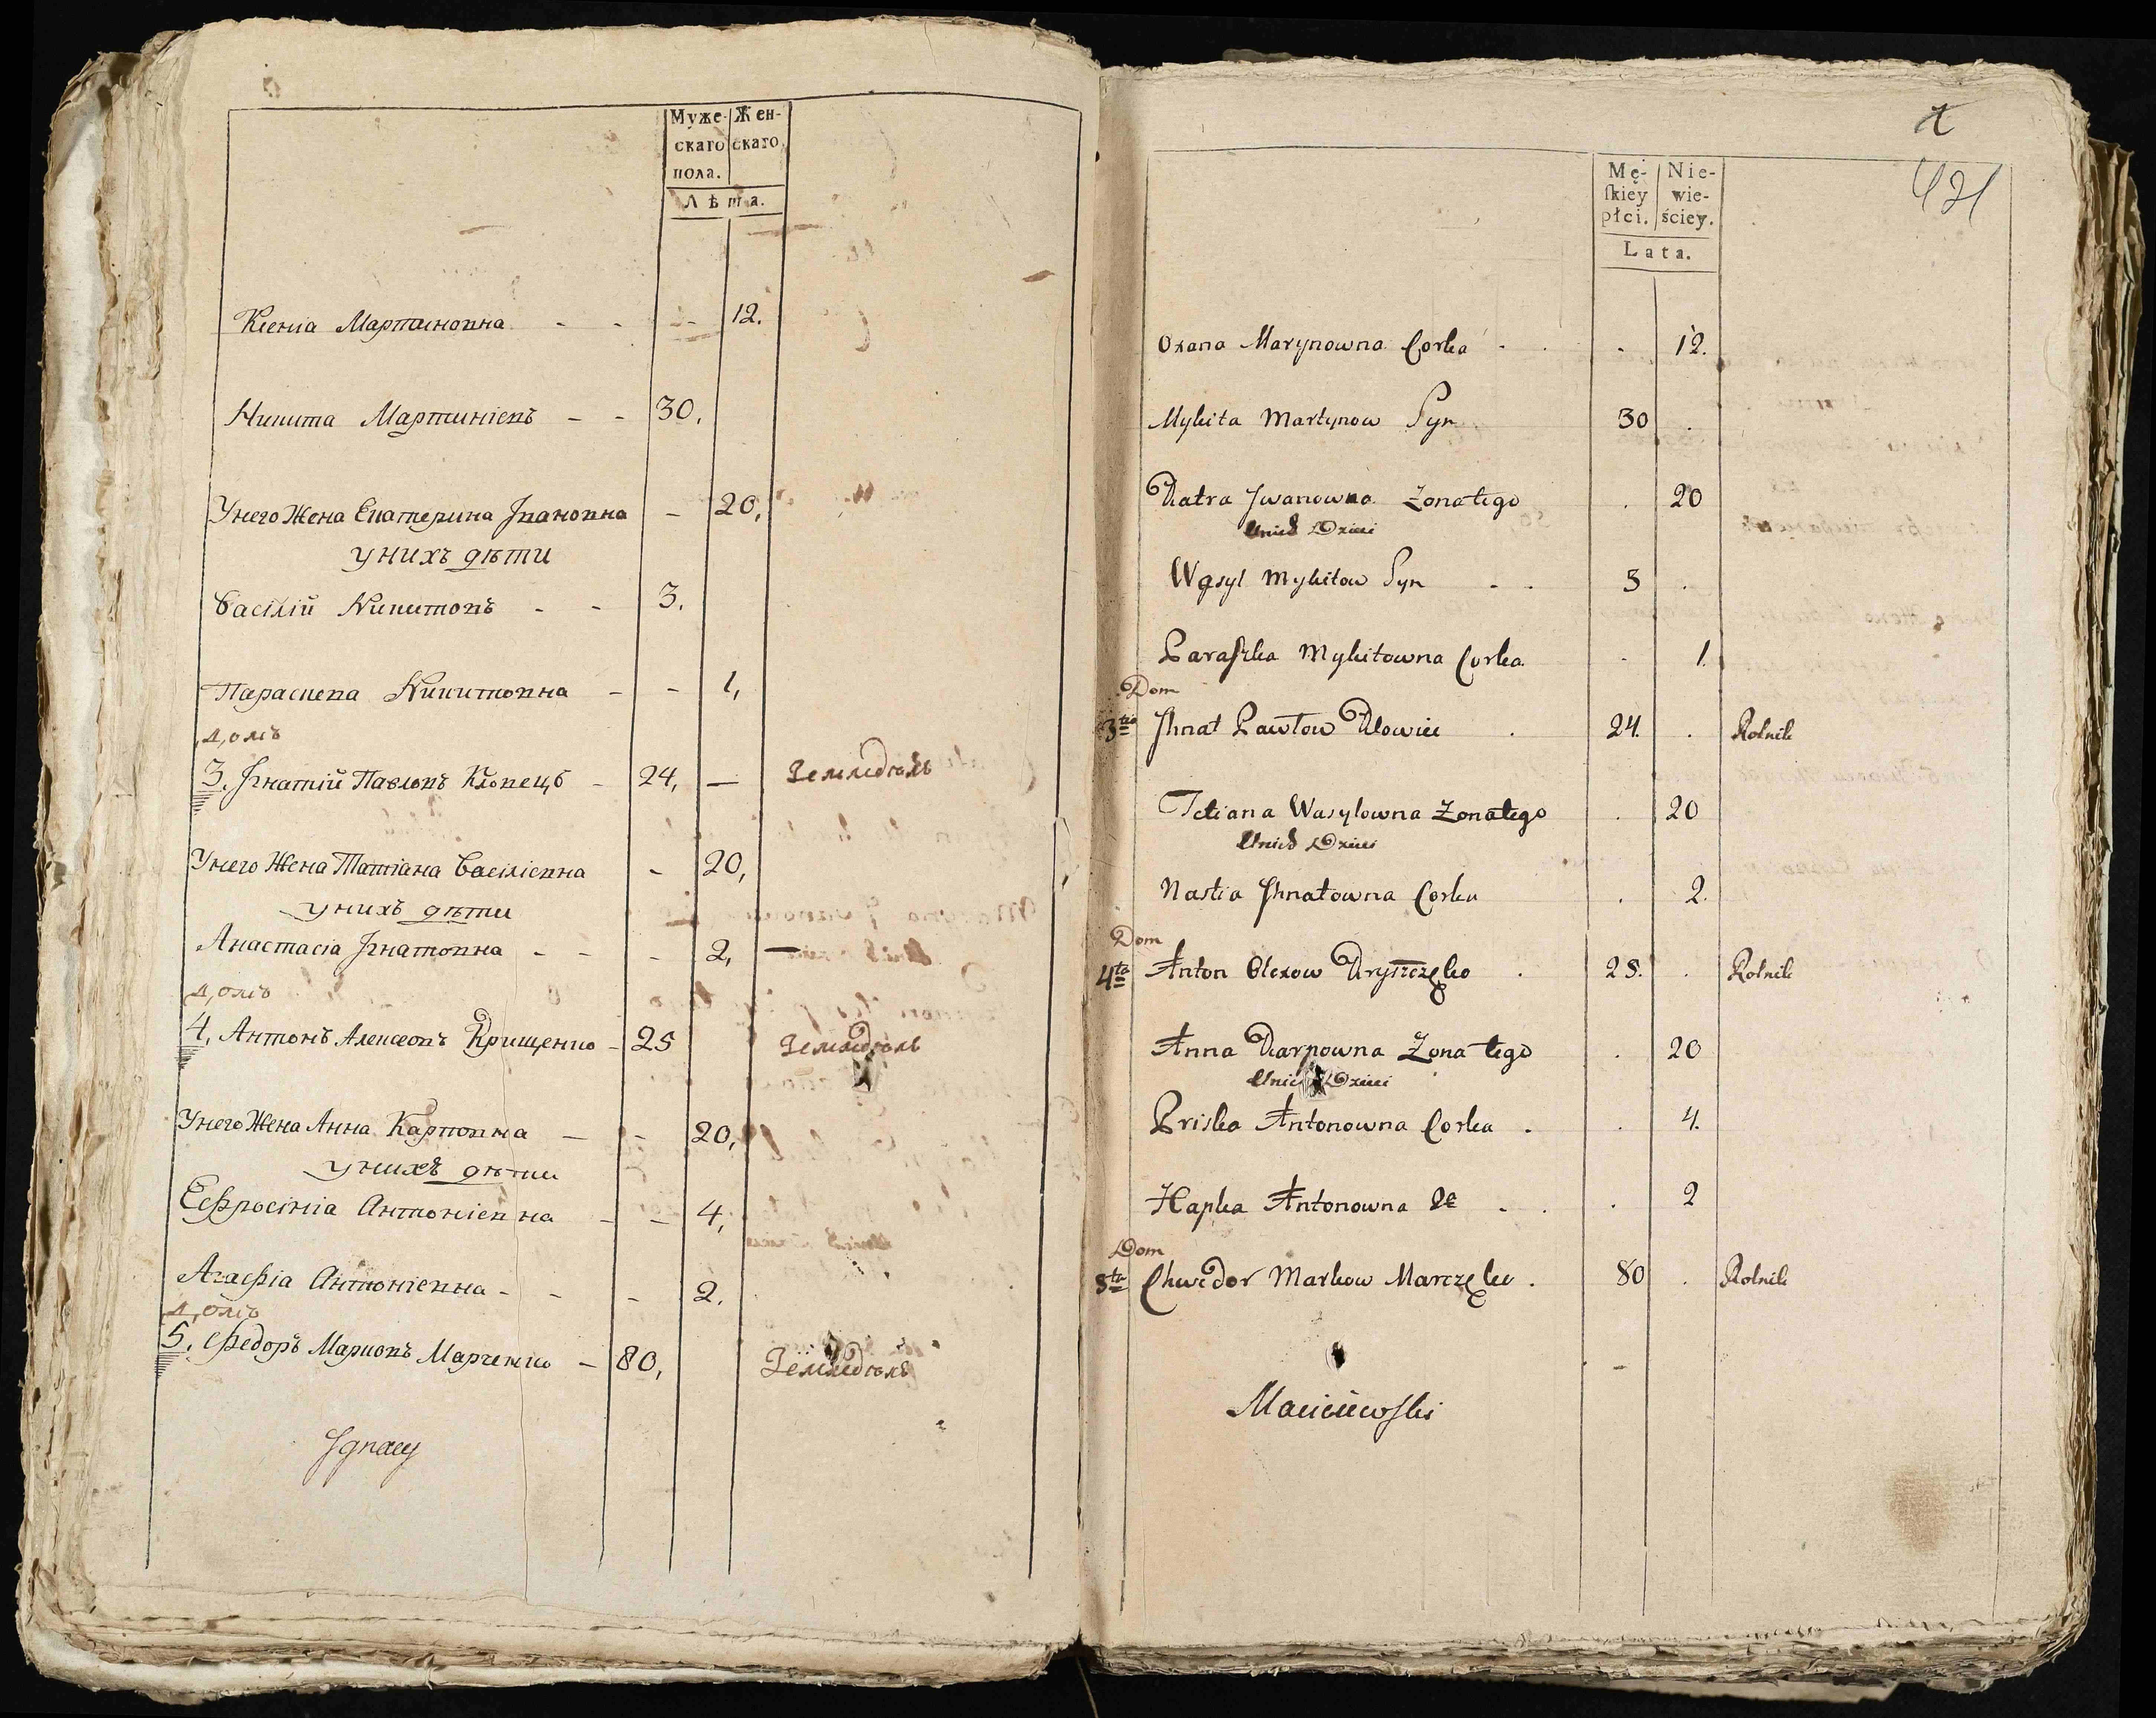 Муже- Жен-
скаго скаго
пола.
Лѣта.
Ксенiа Мартиновна - - - 12.
Никита Мартинiевъ - - 30,
Унего Жена Екатерина Iвановна - 20,
унихъ дѣти
Васiлiй Никитовъ - - 3.
Параскева Никитовна - - 1,
Домъ
3. Iгнатiй Павловъ Кловецъ - 24, — Земледѣль
Унего Жена Татiана Васiлiевна - 20,
унихъ дѣти
Анастасiа Iгнатовна - - - 2, —
Домъ
4, Антонъ Алексеовъ Крищенко - 25 Земледѣль
Унего Жена Анна Карповна — - 20,
унихъ дѣти
Ефросiнiа Антонiевна - - 4,
Агафiа Антонiевна - - - 2.
Домъ
5. Федоръ Марковъ Марченко - 80, Земледѣль
Ignacy
421
Mę- Nie-
ſkiey wie-
płci. ściey.
Lata.
Oxana Marynowna Corka - . - 12.
Mykita Martynow Syn 30 .
Katra Jwanowna Zonatego . 20
Unich Dzieci
Wasyl Mykitow Syn - - 3 .
Paraſzka Mykitowna Corka - 1.
Dom
3tio Jhnat Pawłow Kłowiec . 24. . Rolnik
Tetiana Wasylowna Zonatego . 20
Unich Dzieci
Nastia Jhnatowna Corka . 2.
Dom
4ta Anton Olexow Kryszczęko . 25. . Rolnik
Anna Karpowna Zona tego . 20
Unich Dzieci
Priska Antonowna Corka . . 4.
Hapka Antonowna 2a - . . 2
Dom
5ta Chwedor Markow Marczęko . 80 . Rolnik
-
Macieiewſki